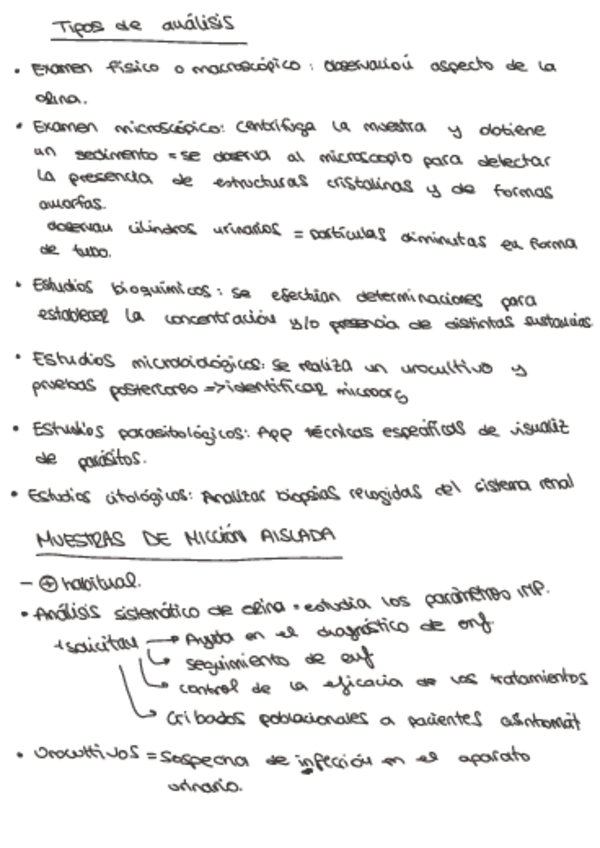 Tipos de análisis
• Examen físico o macroscópico: observación aspecto de la
orina.
• Examen microscópico: centrifuga la muestra y obtiene
un sedimento = se observa al microscopio para detectar
la presencia de estructuras cristalinas y de formas
amorfas.
observan cilindros urinarios = partículas diminutas en forma
de tubo.
• Estudios bioquímicos: se efectúan determinaciones para
establecer la concentración y/o presencia de distintas sustancias
• Estudios microbiológicos: se realiza un urocultivo y
pruebas posteriores => identificar microorg
• Estudios parasitológicos: App técnicas específicas de visualiz
de parásitos.
• Estudios citológicos: Analizar biopsias recogidas del sistema renal
MUESTRAS DE MICCIÓN AISLADA
- ⊕ habitual.
• Análisis sistemático de orina = estudia los parámetros imp.
+ solicitau → Ayuda en el diagnóstico de enf
↳ seguimiento de enf
↳ control de la eficacia de los tratamientos
↳ Cribados poblacionales a pacientes asintomát
• Urocultivos = Sospecha de infección en el aparato
urinario.